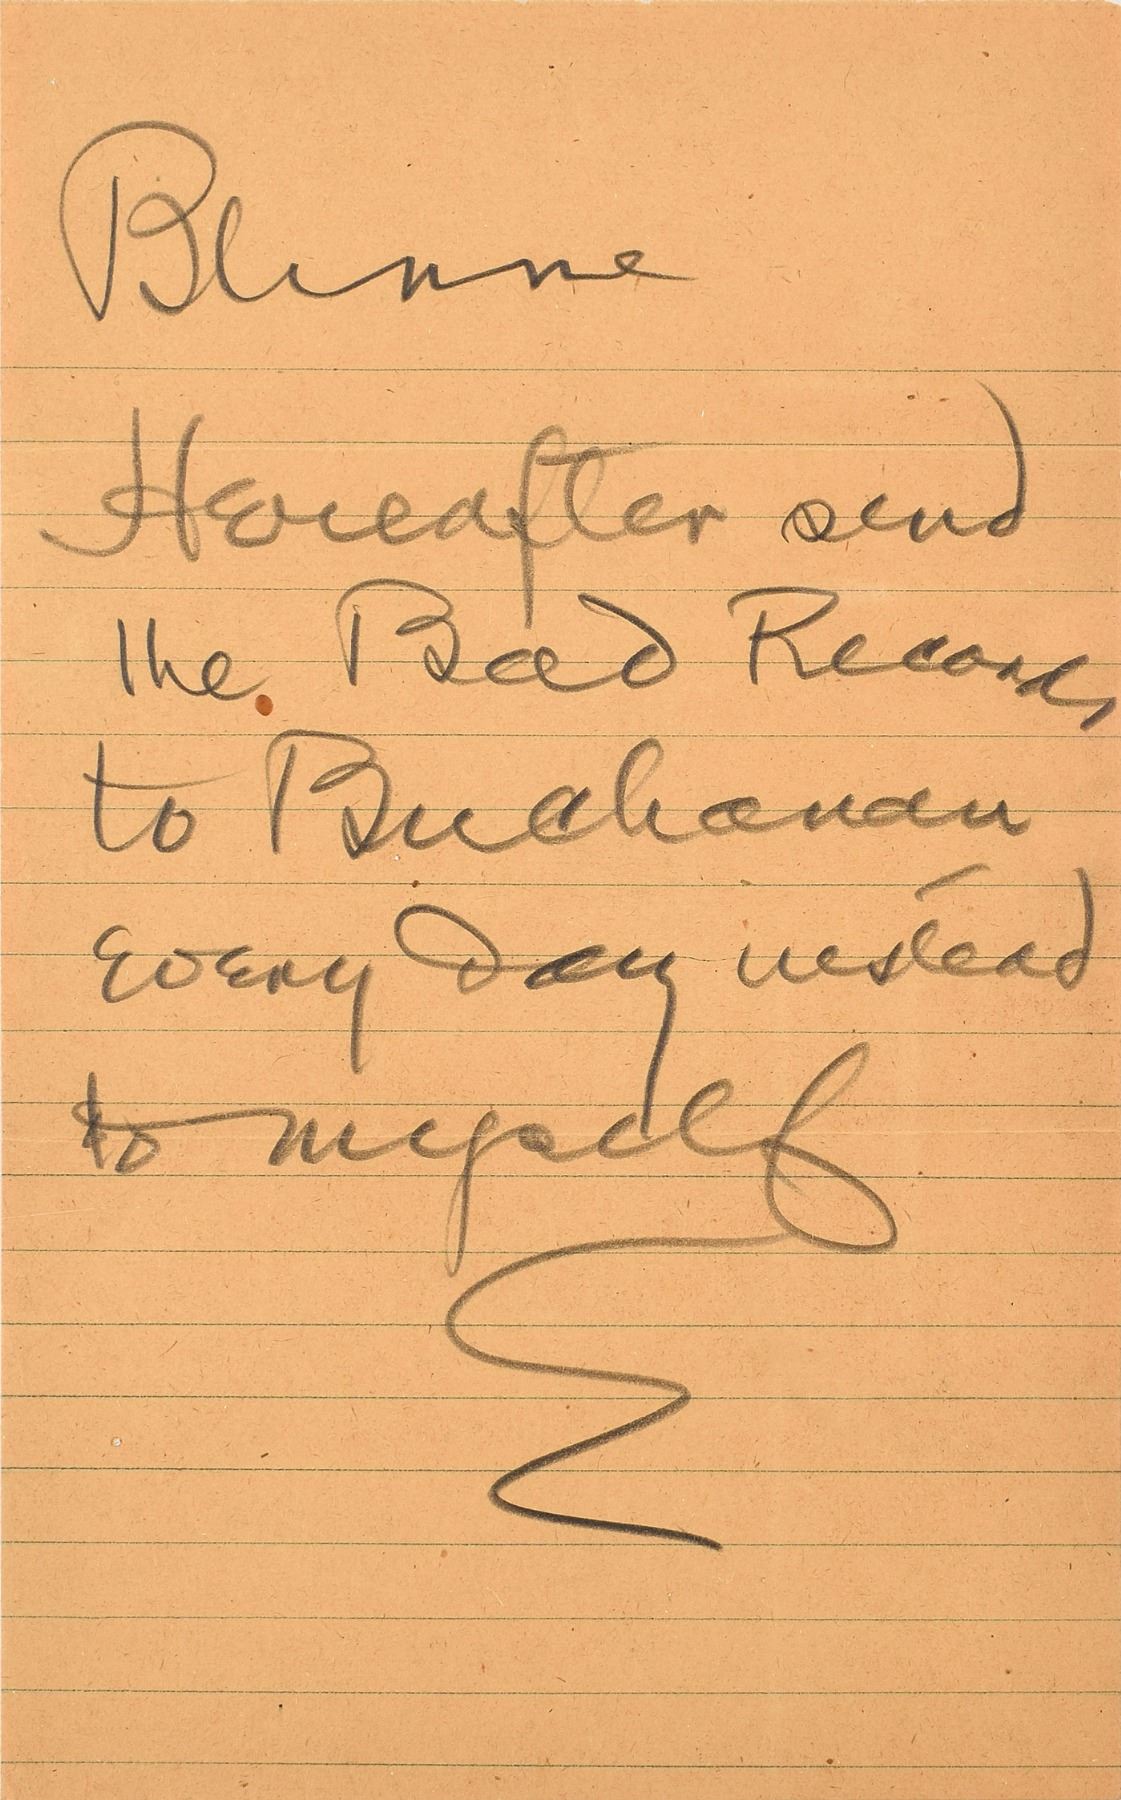 Blinne
Hereafter send
the Bad Records
to Buchanan
every Day instead
to myself
E